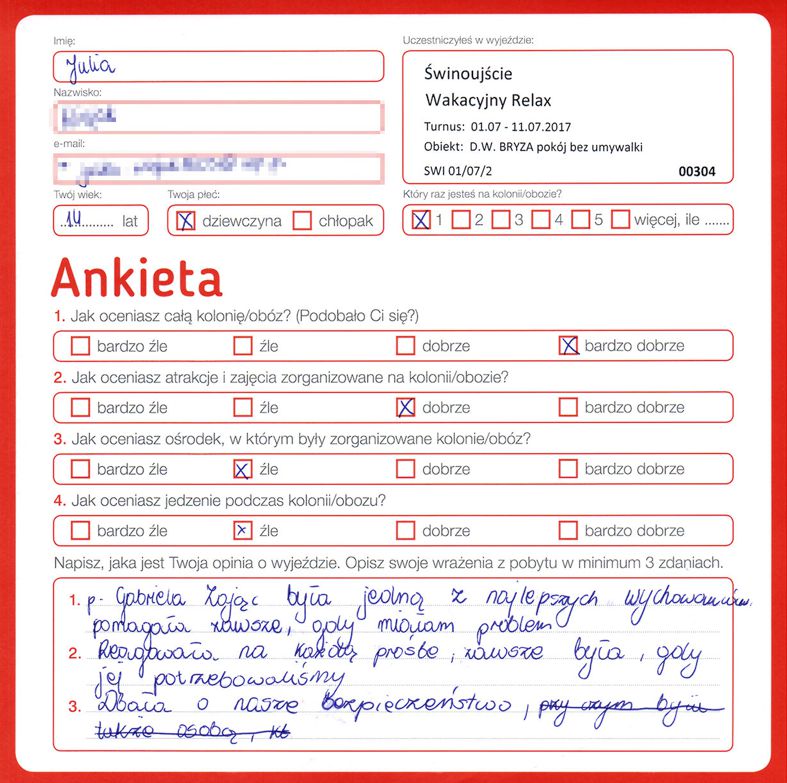 Imię:
Julia
Nazwisko:
e-mail:
Twój wiek:
14 lat
Twoja płeć:
dziewczyna chłopak
Uczestniczyłeś w wyjeździe:
Świnoujście
Wakacyjny Relax
Turnus: 01.07 - 11.07.2017
Obiekt: D.W. BRYZA pokój bez umywalki
SWI 01/07/2 00304
Który raz jesteś na kolonii/obozie?
1 2 3 4 5 więcej, ile .......
Ankieta
1. Jak oceniasz całą kolonię/obóz? (Podobało Ci się?)
bardzo źle źle dobrze bardzo dobrze
2. Jak oceniasz atrakcje i zajęcia zorganizowane na kolonii/obozie?
bardzo źle źle dobrze bardzo dobrze
3. Jak oceniasz ośrodek, w którym były zorganizowane kolonie/obóz?
bardzo źle źle dobrze bardzo dobrze
4. Jak oceniasz jedzenie podczas kolonii/obozu?
bardzo źle źle dobrze bardzo dobrze
Napisz, jaka jest Twoja opinia o wyjeździe. Opisz swoje wrażenia z pobytu w minimum 3 zdaniach.
1. p. Gabriela Zając była jedną z najlepszych wychowawców.
pomagała zawsze, gdy miałam problem
2. Reagowała na każdą prośbe, zawsze była, gdy
jej potrzebowaliśmy
3. Dbała o nasze bezpieczeństwo, przy czym była
także osobą, kt